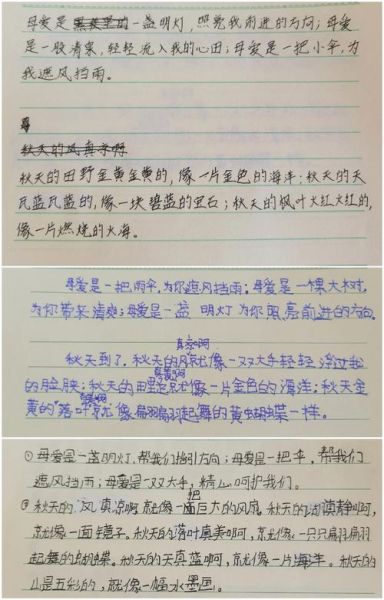 母爱是黑夜里的一盏明灯,照亮我前进的方向;母爱
是一股清泉,轻轻流入我的心田;母爱是一把小伞,为
我遮风挡雨。
秋天的风真凉啊
秋天的田野金黄金黄的,像一片金色的海洋;秋天的天
瓦蓝瓦蓝的,像一块碧蓝的宝石;秋天的枫叶火红火红的,
像一片燃烧的火海。
母爱是一把雨伞,为你遮风挡雨;母爱是一棵大树,
为你带来清爽;母爱是一盏 明灯为你照亮前进的方向。
真凉啊
秋天到了,秋天的风就像一双大手轻轻浮过我
的脸颊;秋天的田野就像一片金色的海洋;秋天金
黄的落叶就像扇翩翩起舞的黄蝴蝶一样。
①母爱是一盏明灯,帮我们指引方向;母爱是一把伞,帮我们
遮风挡雨;母爱是一双大手,精心呵护我们。
②秋天的风真凉啊,就像一把巨大的风扇。秋天的湖真静啊,
就像一面镜子。秋天的落叶真美啊,就像一只只翩翩
起舞的蝴蝶。秋天的天真蓝啊,就像一片海洋。秋天的
山是五彩的,就像一幅水墨画。